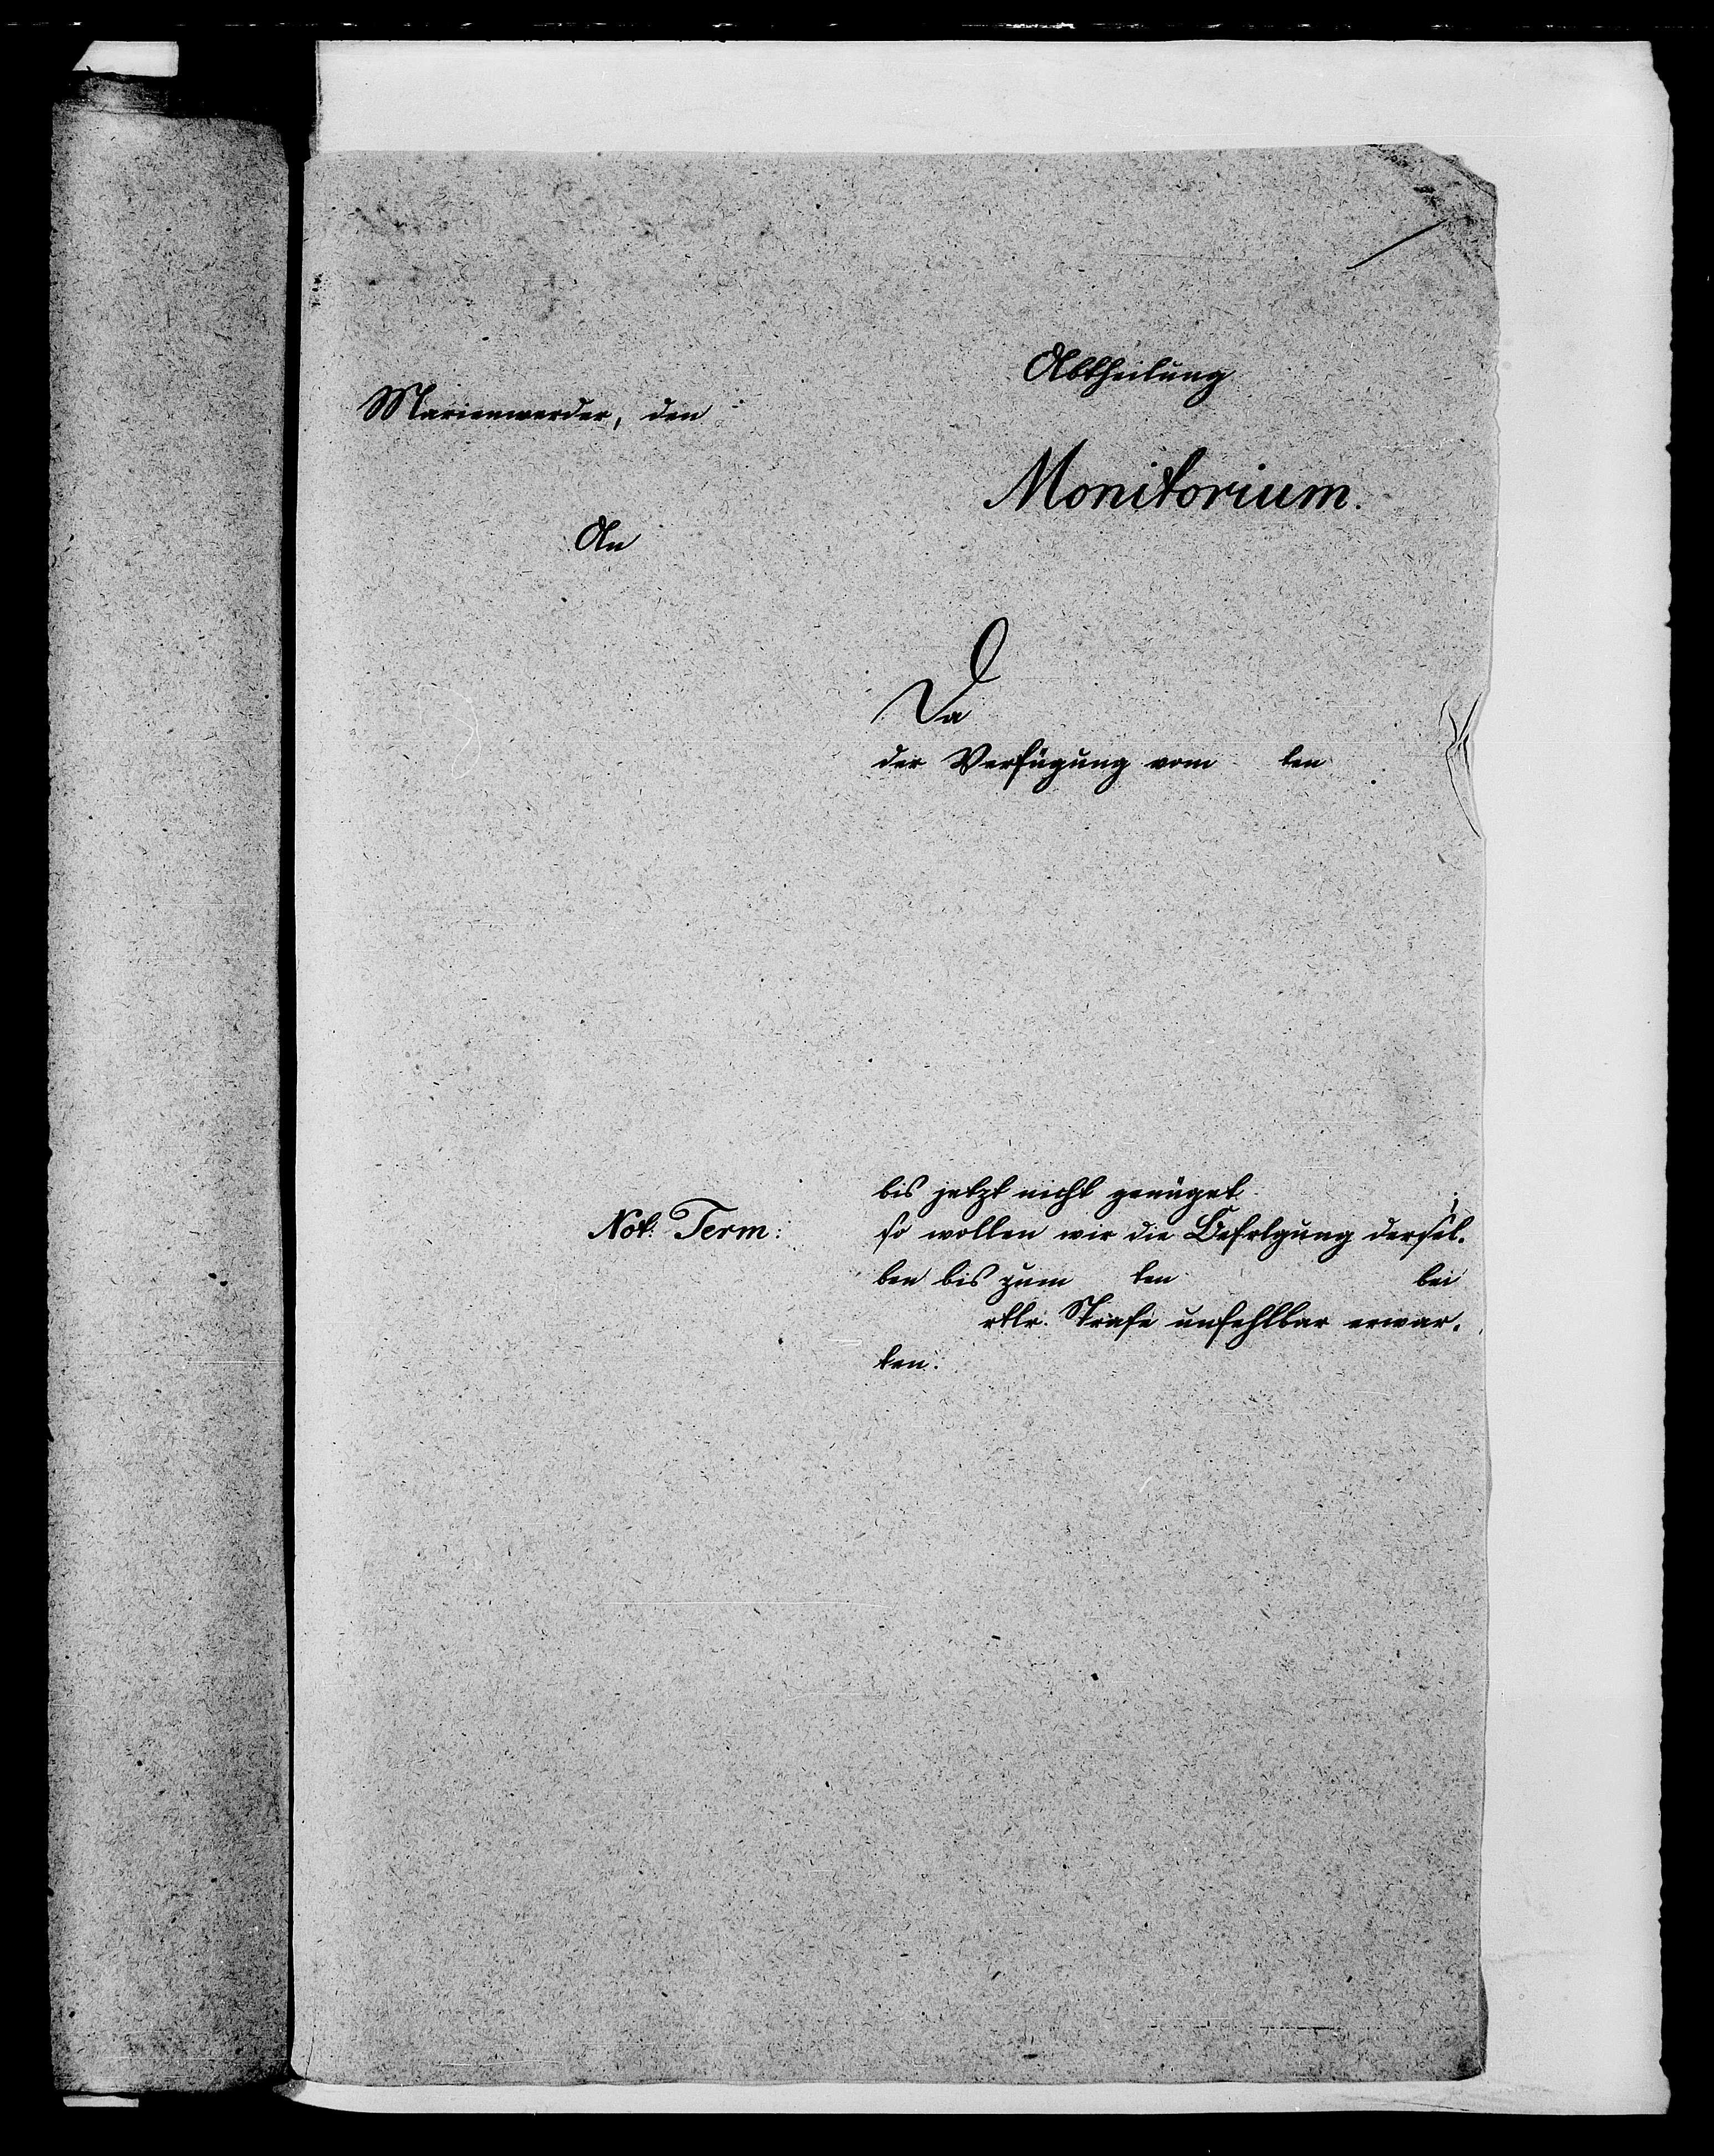 Abtheilung
Marienwerder, den
Monitorium.
An
Da
der Verfügung vom ten
bis jetzt nicht genüget ;
Not: Term:
so wollen wir die Befolgung dersel-
ben bis zum ten bei
rtlr. Strafe unfehlbar erwar-
ten.